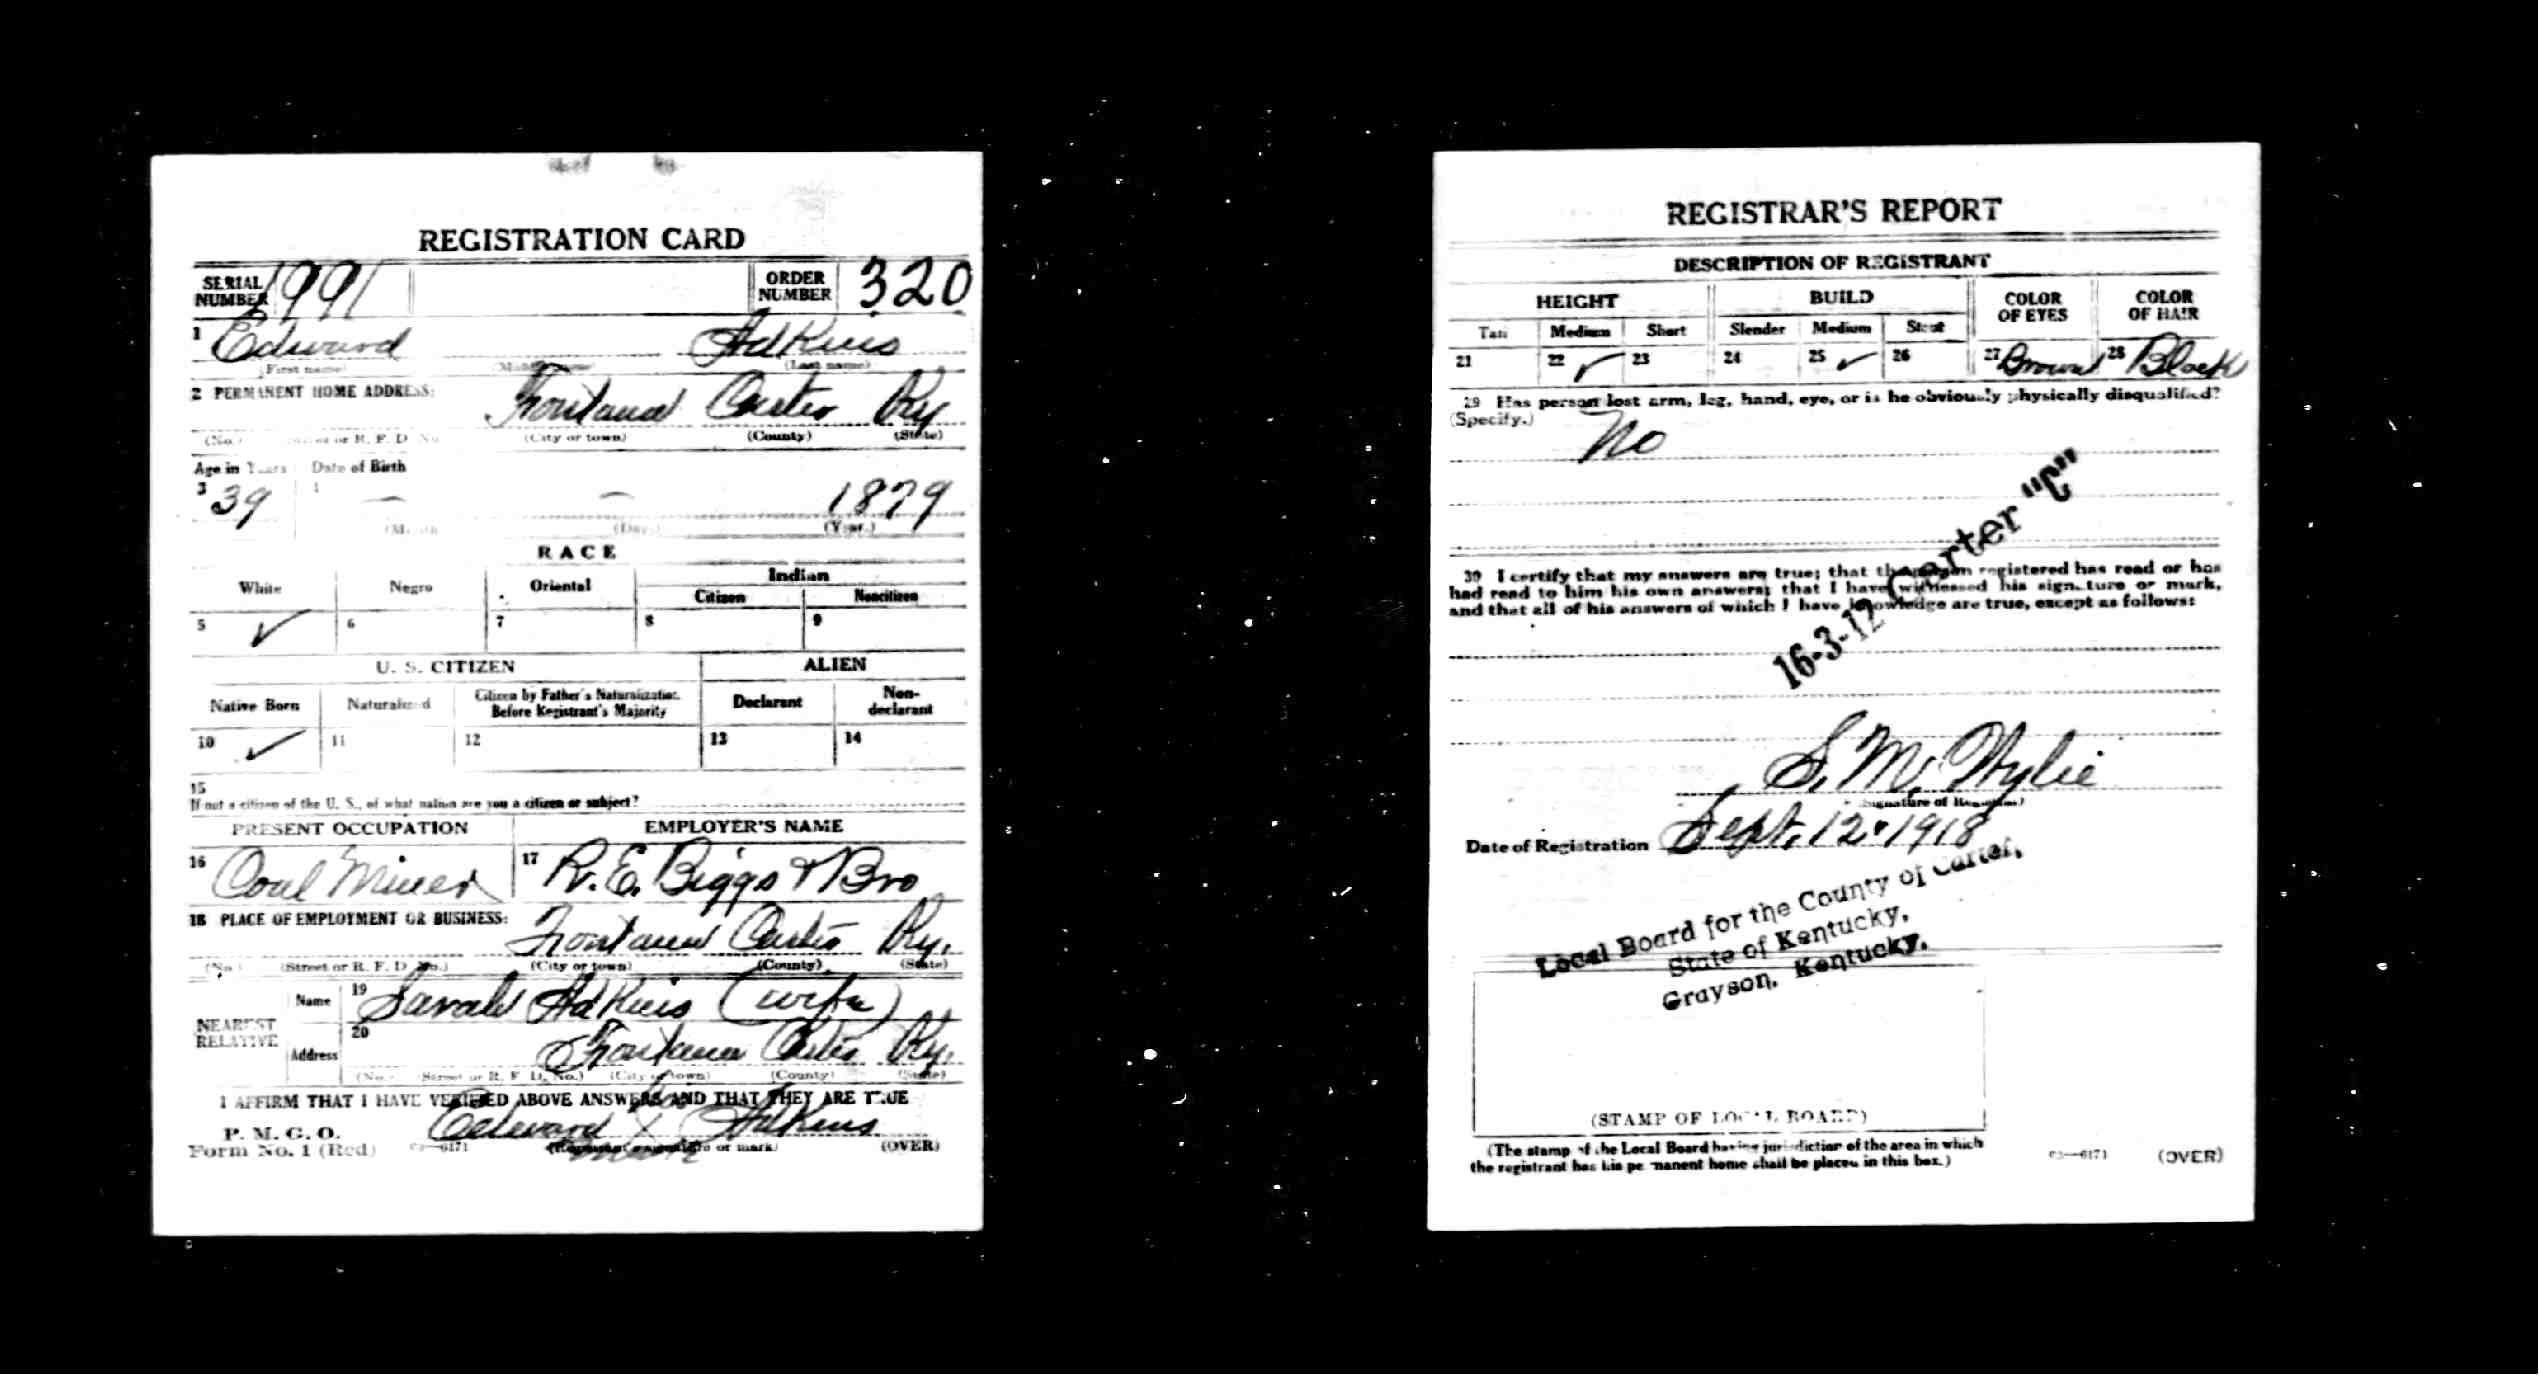 REGISTRATION CARD
SERIAL NUMBER 1991 ORDER NUMBER 320
1 Edward Adkins
(First name) (Middle name) (Last name)
2 PERMANENT HOME ADDRESS:
Fontana Carter Ky
(No.) (Street or R. F. D. No.) (City or town) (County) (State)
Age in Years Date of Birth
3 39 1879
(Month) (Day.) (Year.)
RACE
White Negro Oriental Indian
Citizen Noncitizen
5 ✓ 6 7 8 9
U. S. CITIZEN ALIEN
Native Born Naturalized Citizen by Father's Naturalization Before Registrant's Majority Declarant Non-declarant
10 ✓ 11 12 13 14
15
If not a citizen of the U. S., of what nation are you a citizen or subject?
PRESENT OCCUPATION EMPLOYER'S NAME
16 Coal Miner 17 R. E. Biggs & Bro
18 PLACE OF EMPLOYMENT OR BUSINESS:
Fontana Carter Ky.
(No.) (Street or R. F. D. No.) (City or town) (County) (State)
NEAREST RELATIVE
Name 19 Sarah Adkins (wife)
Address 20 Fontana Carter Ky.
(No.) (Street or R. F. D. No.) (City or town) (County) (State)
I AFFIRM THAT I HAVE VERIFIED ABOVE ANSWERS AND THAT THEY ARE TRUE
P. M. G. O.
Form No. 1 (Red) 03—6171
his
Edward X Adkins
mark
(Registrant's signature or mark) (OVER)
REGISTRAR'S REPORT
DESCRIPTION OF REGISTRANT
HEIGHT BUILD COLOR OF EYES COLOR OF HAIR
Tall Medium Short Slender Medium Stout
21 22 ✓ 23 24 25 ✓ 26 27 Brown 28 Black
29 Has person lost arm, leg, hand, eye, or is he obviously physically disqualified?
(Specify.)
No
30 I certify that my answers are true; that the person registered has read or has
had read to him his own answers; that I have witnessed his signature or mark,
and that all of his answers of which I have knowledge are true, except as follows:
16-3-12 Carter "C"
S. M. Wylie
(Signature of Registrar)
Date of Registration Sept. 12. 1918
Local Board for the County of Carter,
State of Kentucky,
Grayson, Kentucky.
(STAMP OF LOCAL BOARD)
(The stamp of the Local Board having jurisdiction of the area in which
the registrant has his permanent home shall be placed in this box.)
03—6171 (OVER)